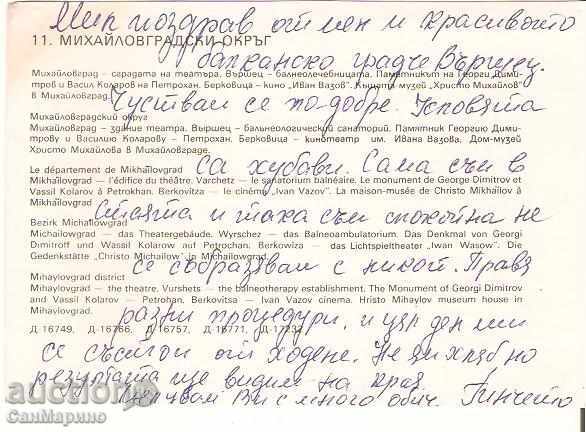 Мил поздрав от мен и красивото
11. МИХАЙЛОВГРАДСКИ ОКРЪГ
балканско градче Вършец.
Михайловград – сградата на театъра, Вършец – балнеолечебницата. Паметникът на Георги Дими-
тров и Васил Коларов на Петрохан. Берковица – кино „Иван Вазов". Къщата музей „Христо Михайлов"
в Михайловград.
Чуствам се по-добре. Условята
Михайловградский округ
Михайловград – здание театра. Выршец – бальнеологический санаторий. Памятник Георгию Дими-
трову и Василию Коларову – Петрохан. Берковица – кинотеатр им. Ивана Вазова. Дом-музей
Христо Михайлова в Михайловграде.
са хубави. Сама съм в
Le département de Mikhaïlovgrad
Mikhaïlovgrad – l'édifice du théâtre. Varchetz – le sanatorium balnéaire. Le monument de George Dimitrov et
Vassil Kolarov à Petrokhan. Berkovitza – le cinéma „Ivan Vazov". La maison-musée de Christo Mikhaïlov à
Mikhaïlovgrad
стаята и така съм спокойна не
Bezirk Michailowgrad
Michailowgrad – das Theatergebäude. Wyrschez – das Balneoambulatorium. Das Denkmal von Georgi
Dimitroff und Wassil Kolarow auf Petrochan. Berkowiza – das Lichtspieltheater „Iwan Wasow". Die
Gedenkstätte „Christo Michailow" in Michailowgrad.
се съобразявам с никой. Правя
Mihaylovgrad district
Mihaylovgrad – the theatre. Vurshets – the balneotherapy establishment. The Monument of Georgi Dimitrov
and Vassil Kolarov – Petrohan. Berkovitsa – Ivan Vazov cinema. Hristo Mihaylov museum house in
Mihaylovgrad.
разни процедури, и цял ден ми
Д 16749, Д-16766, Д 16757, Д-16771, Д-17237
се от ходене. Не но
резултата ще видим на края
Ви с много обич. Гинчето
auction
СанМарино